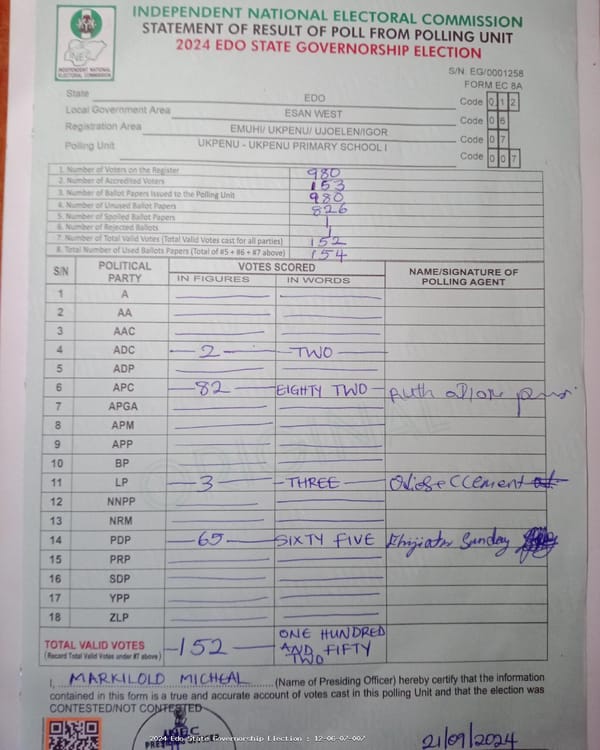 INDEPENDENT NATIONAL ELECTORAL COMMISSION
STATEMENT OF RESULT OF POLL FROM POLLING UNIT
2024 EDO STATE GOVERNORSHIP ELECTION
INEC
INDEPENDENT NATIONAL
ELECTORAL COMMISSION
S/N: EG/0001258
FORM EC 8A
State EDO Code 0 1 2
Local Government Area ESAN WEST Code 0 6
Registration Area EMUHI/ UKPENU/ UJOELEN/IGOR Code 0 7
Polling Unit UKPENU - UKPENU PRIMARY SCHOOL I Code 0 0 7
1. Number of Voters on the Register 980
2. Number of Accredited Voters 153
3. Number of Ballot Papers Issued to the Polling Unit 980
4. Number of Unused Ballot Papers 826
5. Number of Spoiled Ballot Papers 1
6. Number of Rejected Ballots 1
7. Number of Total Valid Votes (Total Valid Votes cast for all parties) 152
8. Total Number of Used Ballots Papers (Total of #5 + #6 + #7 above) 154
S/N POLITICAL PARTY VOTES SCORED NAME/SIGNATURE OF POLLING AGENT
IN FIGURES IN WORDS
1 A
2 AA
3 AAC
4 ADC 2 TWO
5 ADP
6 APC 82 EIGHTY TWO
7 APGA
8 APM
9 APP
10 BP
11 LP 3 THREE
12 NNPP
13 NRM
14 PDP 65 SIXTY FIVE Sunday
15 PRP
16 SDP
17 YPP
18 ZLP
TOTAL VALID VOTES 152 ONE HUNDRED AND FIFTY TWO
(Record Total Valid Votes under #7 above)
I, MARKILOLD MICHEAL (Name of Presiding Officer) hereby certify that the information
contained in this form is a true and accurate account of votes cast in this polling Unit and that the election was
CONTESTED/NOT CONTESTED
INEC
21/09/2024
2024 Edo State Governorship Election : 12-06-07-007